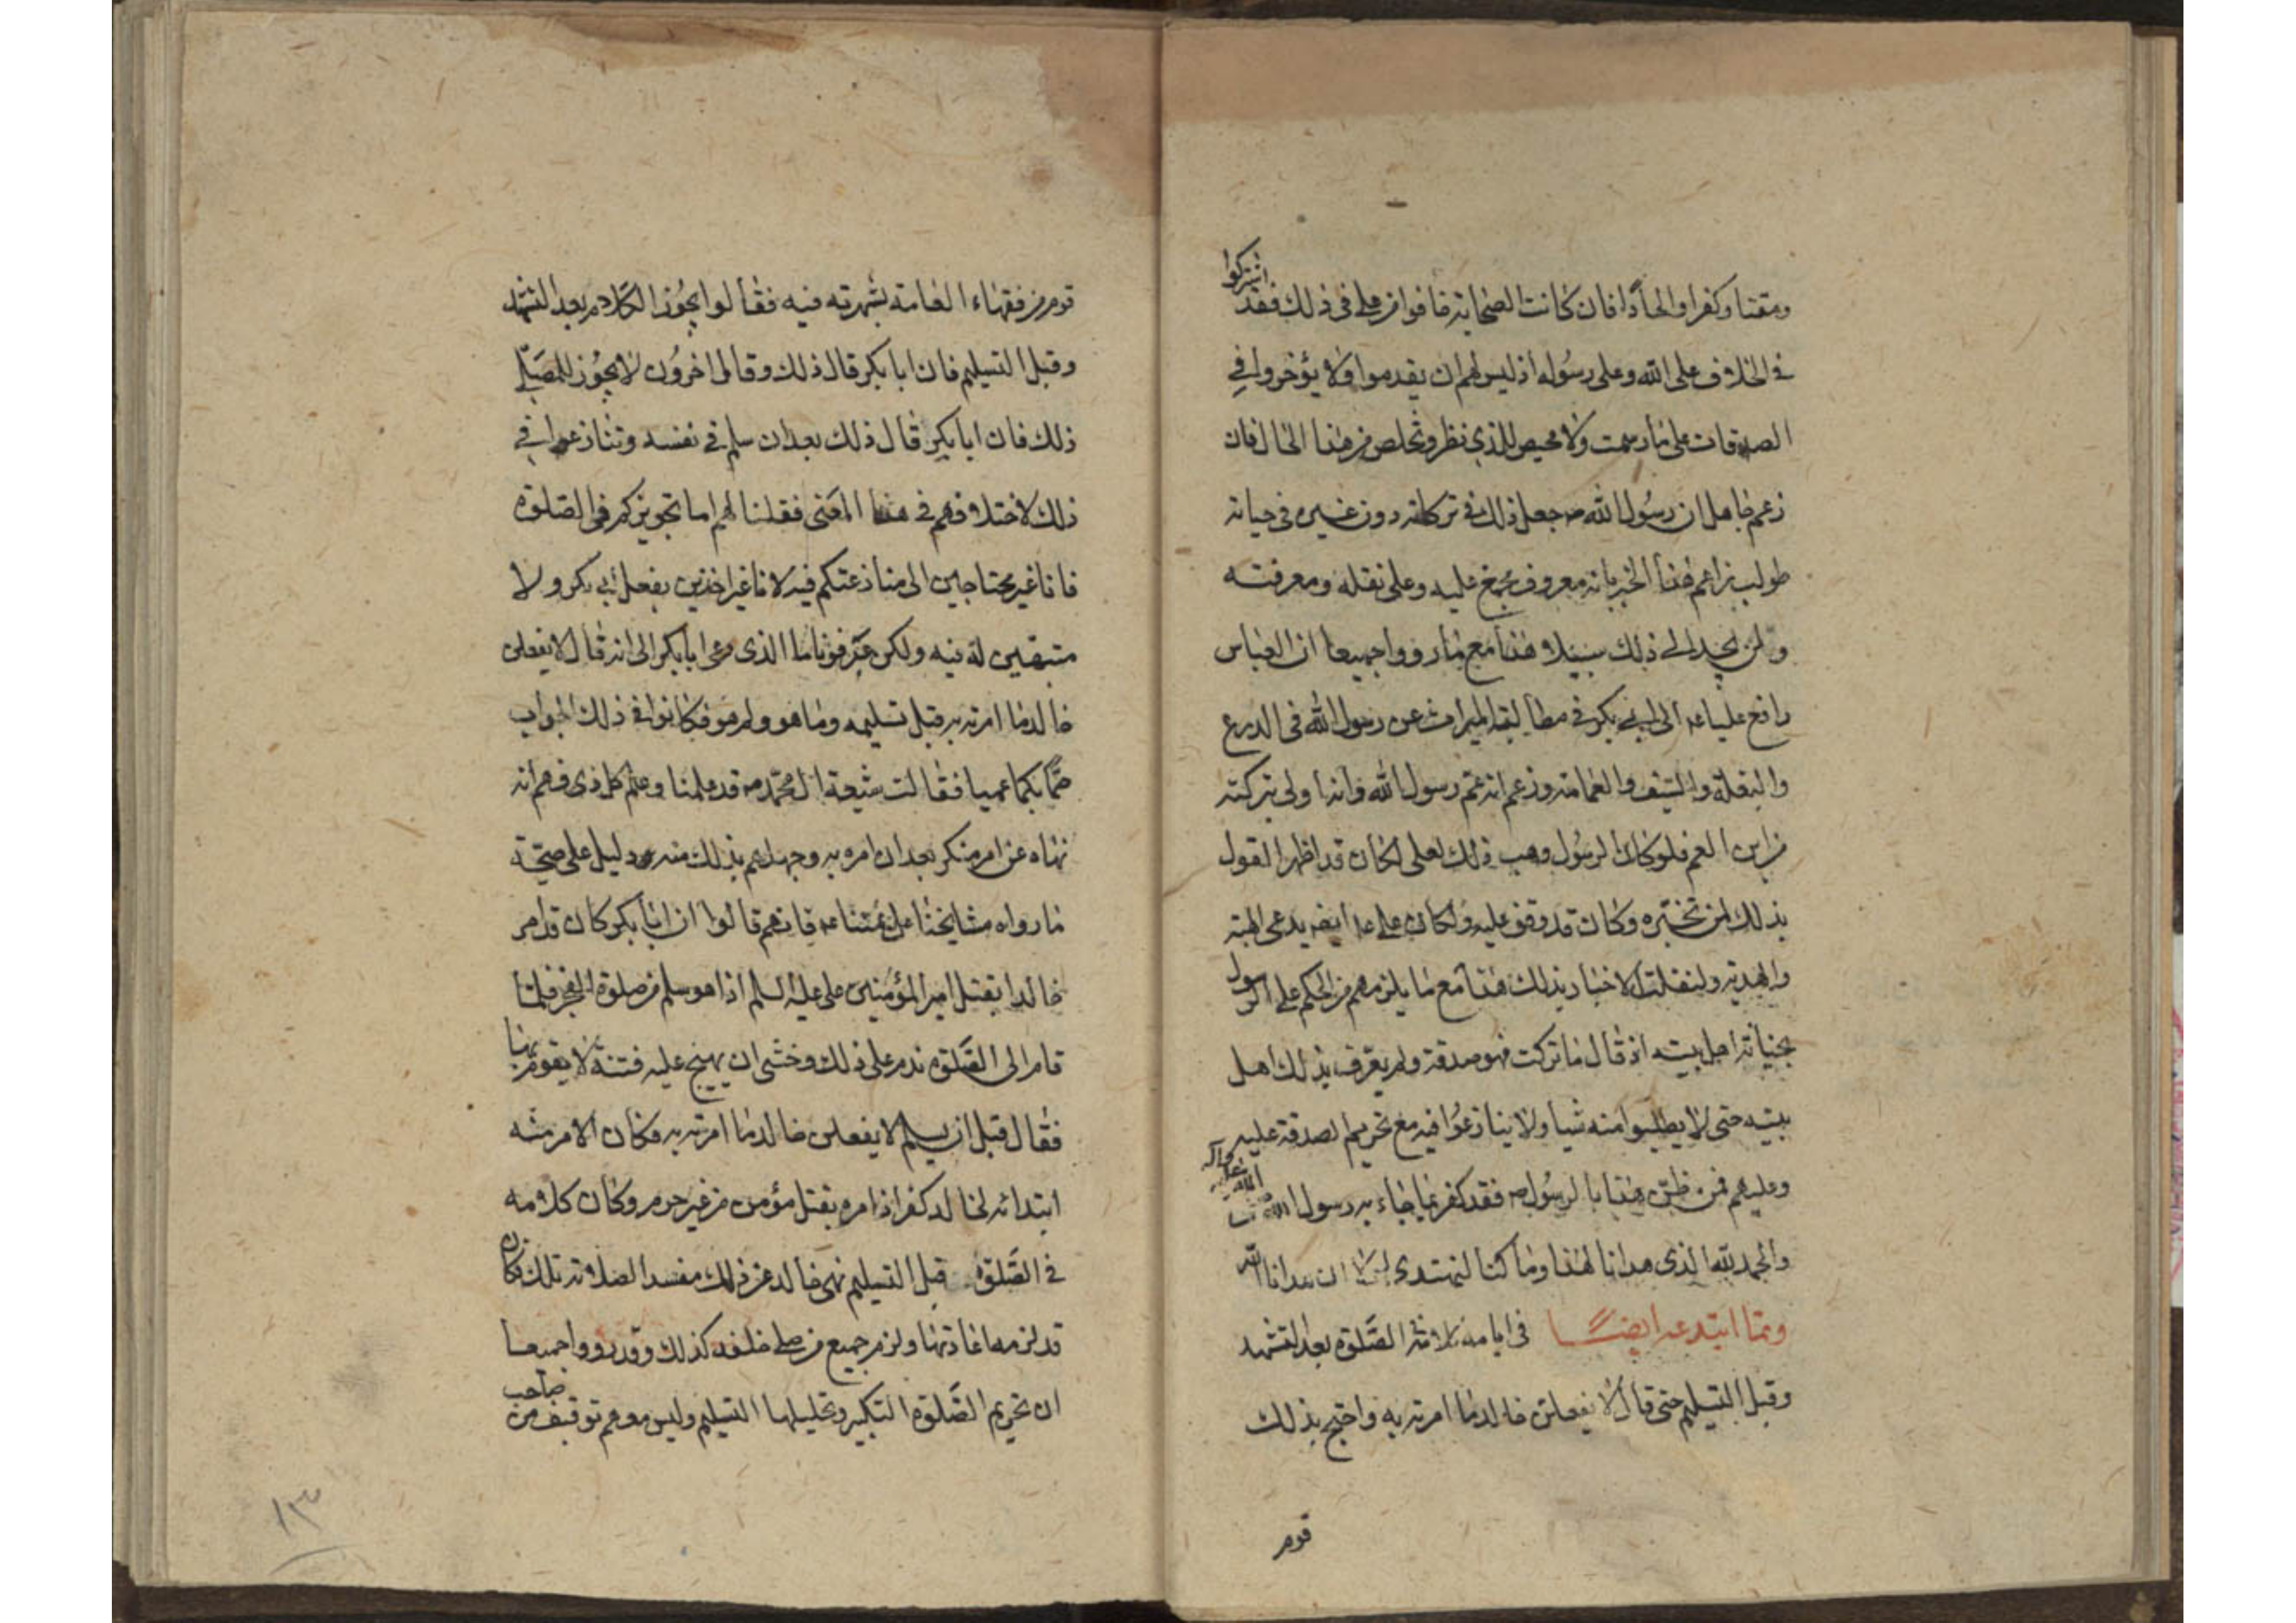 ومقتا وكفرا والحادا فان كانت الصحابة قد وافوا من على في ذلك فقد اشتركوا
في الخلاف على الله وعلى رسوله اذ ليس لهم ان يقدموا ولا يؤخروا في
الصدقات على ما رسمت ولا محيص للذي نظر وتخلص من هذا الحال فان
زعم جاهل ان رسول الله ص جعل ذلك في تركاته دون غيره في حياته
طولب زاعم هذا الخبر بانه معروف مجمع عليه وعلى نقله ومعرفته
ولن يجد الى ذلك سبيلا هذا مع ما رووا جميعا ان العباس
رافع عليا عه الى ابي بكر في مطالبة الميراث عن رسول الله في الدرع
والبغلة والسيف والعمامة وزعم انه عم رسول الله وانه اولى بتركته
من ابن العم فلو كان الرسول وهب ذلك لعلى لكان قد اظهر القول
بذلك لمن تخبره وكان قد وقف عليه ولكان على عه ايضا يدعى الهبة
والهدية ولنقلت الاخبار بذلك هذا مع ما يلزمهم من الحكم على الرسول
بخيانة اهل بيته اذ قال ما تركت فهو صدقة ولم يعرف بذلك اهل
بيته حتى لا يطلبوا منه شيأ ولا ينازعوا فيه مع تحريم الصدقة عليه
وعليهم فمن ظن هذا بالرسول ص فقد كفر بما جاء به رسول الله صلى الله عليه وآله
والحمد لله الذى هدانا لهذا وما كنا لنهتدى لولا ان هدانا الله
ومما ابتدعه ايضا في ايامه كلامه في الصلوة بعد التشهد
وقبل التسليم حتى قال لا يفعلن خالد ما امرته به واحتج بذلك
قوم
قوم من فقهاء العامة بشهرته فيه فقالوا يجوز الكلام بعد التشهد
وقبل التسليم فان ابا بكر قال ذلك وقال اخرون لا يجوز للمصلى
ذلك فان ابا بكر قال ذلك بعد ان سلم في نفسه وتنازعوا في
ذلك لاختلافهم في هذا المعنى فقلنا لهم اما تجويزكم في الصلوة
فانا غير محتاجين الى منازعتكم فيه لانا غير اخذين بفعل ابي بكر ولا
متبعين له فيه ولكن عرفونا ما الذى دعى ابا بكر الى ان قال لا يفعلن
خالد ما امرته به قبل تسليمه وما هو ولم هو فكانوا في ذلك الجواب
صما بكما عميا فقالت شيعة ال محمد ص قد علمنا وعلم كل ذى فهم انه
نهاه عن امر منكر بعد ان امره به وجهلهم بذلك منه دليل على صحة
ما رواه مشايخنا عن ائمتنا عه فانهم قالوا ان ابا بكر كان قد امر
خالدا بقتل امير المؤمنين على عليه السلم اذا هو سلم من صلوة الفجر فلما
قام الى الصلوة ندم على ذلك وخشى ان يهيج عليه فتنة لا يقوم بها
فقال قبل ان يسلم لا يفعلن خالد ما امرته به فكان الامر منه
ابتدائه لخالد كفرا اذ امره بقتل مؤمن من غير جرم وكان كلامه
في الصلوة قبل التسليم نهى خالد عن ذلك مفسدا لصلاته تلك فكان
قد لزمه اعادتها ولزم جميع من صلى خلفه كذلك وقد رووا جميعا
ان تحريم الصلوة التكبير وتحليلها التسليم وليس معهم توقيف من صاحب
١٣